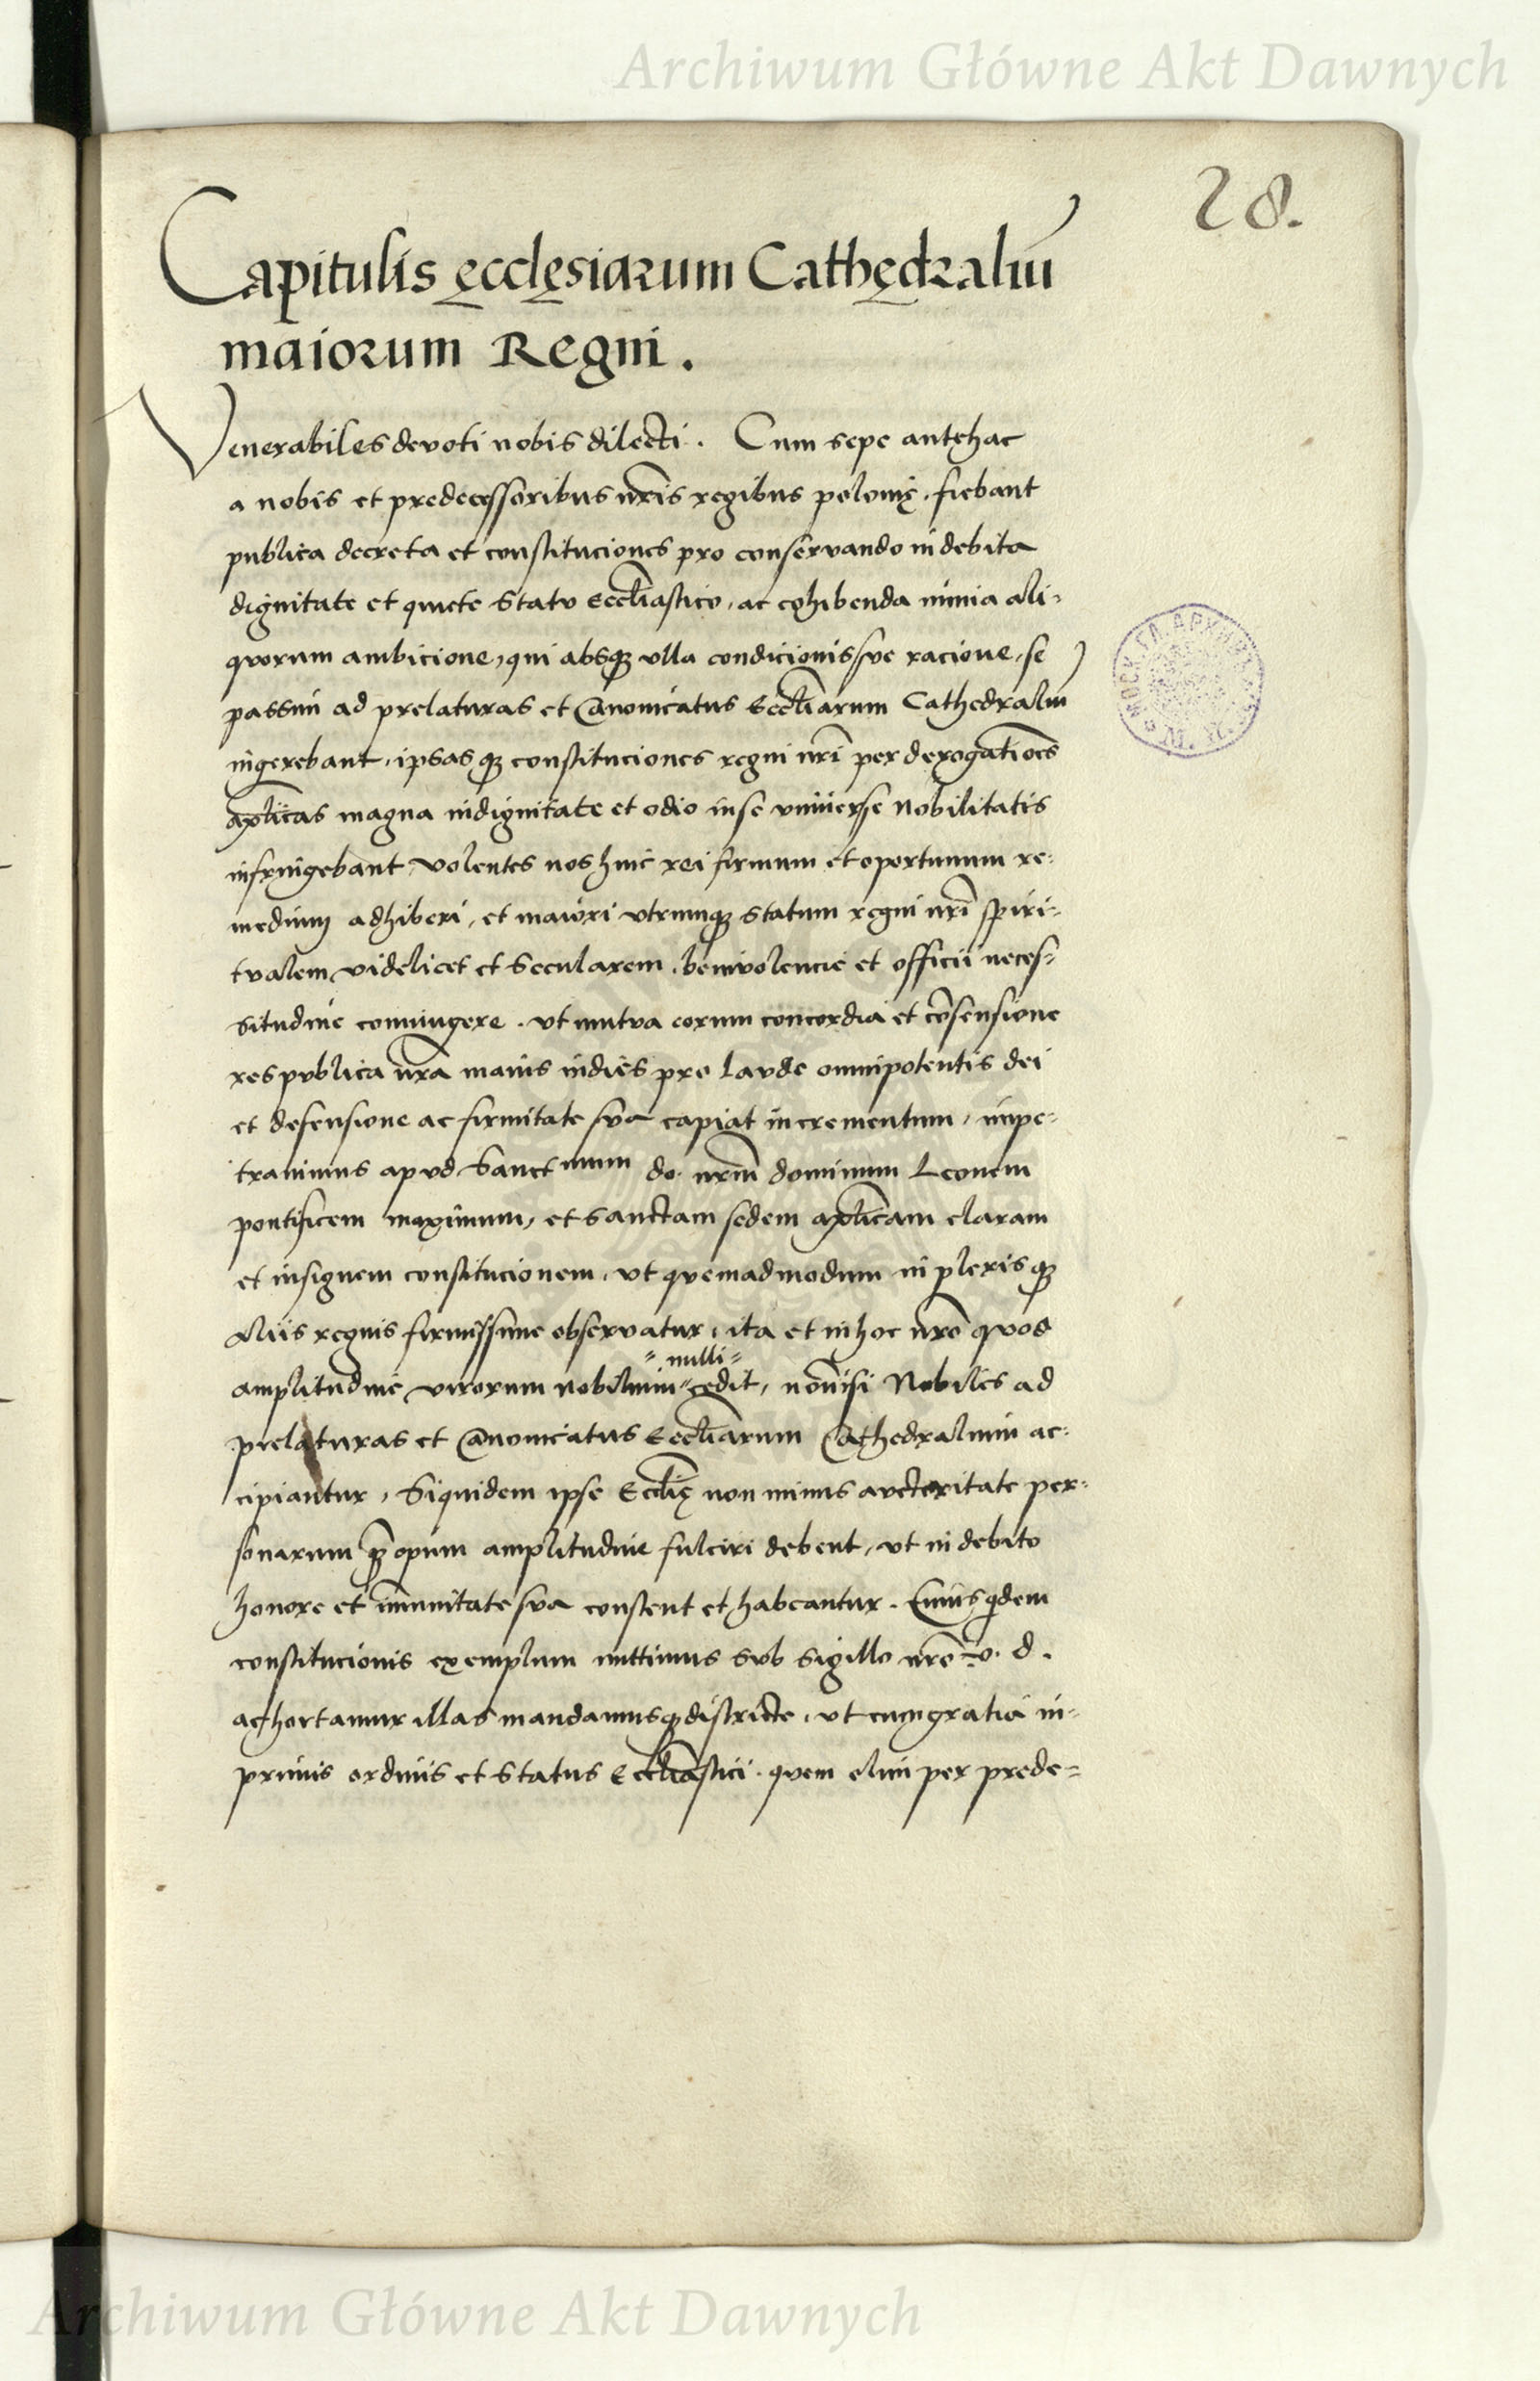 Archiwum Główne Akt Dawnych
28.
Capitulis ęcclęsiarum Cathędraliū
maiorum Regni.
Venerabiles devoti nobis dilecti. Cum sepe antehac
a nobis et predecessoribus nr̃is regibus polonię, fiebant
publica decreta et constituciones pro conservando in debita
dignitate et quiete Statu Eccl̃iastico, ac cohibenda nimia ali-
quorum ambicione, qui absqꝫ ulla condicionis sue racione, se
passim ad prelaturas et Canonicatus Eccl̃iarum Cathedraliũ
ingerebant, ipsasqꝫ constituciones regni nr̃i per derogatiões
ap̃licas magna indignitate et odio in se universe Nobilitatis
infringebant, volentes nos huic rei firmum et oportunum re-
medium adhiberi, et maiori utrumqꝫ statum regni nr̃i spiri-
tualem videlicet et Secularem, benivolencie et officii neces-
situdine coniungere. ut mutua eorum concordia et cõsensione
res publica nr̃a maius indies pro laude omnipotentis dei
et defensione ac firmitate sua capiat incrementum, impe-
travimus apud Sanctmum do. nrm̃ dominum Leonem
pontificem maximum, et Sanctam sedem ap̃licam claram
et insignem constitucionem, ut quemadmodum in plerisqꝫ
aliis regnis firmissime observatur, ita et in hoc nr̃o quod
=nulli=
amplitudine virorum nobilium =cedit, non nisi Nobiles ad
prelaturas et Canonicatus Eccl̃iarum Cathedralium ac-
cipiantur, Siquidem ipse Eccl̃ię non minus auctoritate per-
sonarum qꝫ̃ opum amplitudine fulciri debent, ut in debito
honore et im̃unitate sua constent et habeantur. Cuius qdem
constitucionis exemplum mittimus sub sigillo nr̃o v. d.
adhortamur illas mandamusqꝫ districte, ut cum gratia in-
primis ordinis et Status Eccl̃iastici. quem olim per prede-
Archiwum Główne Akt Dawnych